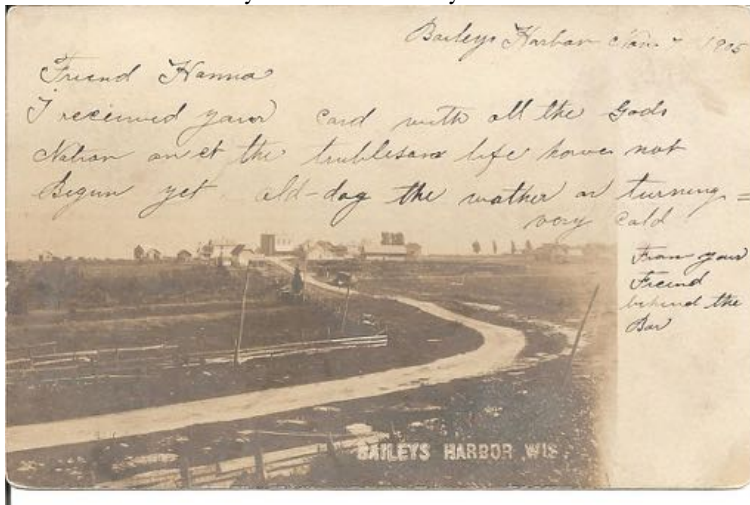 Baileys Harbor Nov 7 1905
Freind Hanna
I received your Card with all the Gods
Nation on et the trublesam life have not
Begun yet old-dog the wather ar turning =
very Cald
From your
Freind
behind the
Bar
BAILEYS HARBOR WIS.